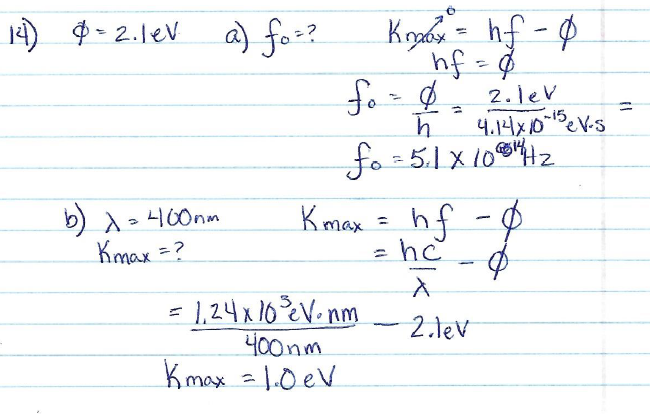 14) ϕ = 2.1eV a) f₀ = ? Kmax⁰ = hf - ϕ
hf = ϕ
f₀ = ϕ/h = 2.1eV / 4.14 x 10⁻¹⁵ eV·s =
f₀ = 5.1 x 10¹⁴ Hz
b) λ = 400nm Kmax = hf - ϕ
Kmax = ? = hc/λ - ϕ
= 1.24 x 10³ eV·nm / 400nm - 2.1eV
Kmax = 1.0 eV